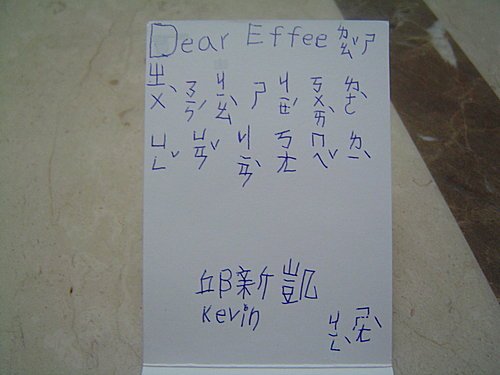 Dear Effee ㄌㄠˇ ㄕ
ㄓㄨˋ ㄋㄧㄣˊ ㄐㄧㄠˋ ㄕ ㄐㄧㄝˊ ㄎㄨㄞˋ ㄌㄜˋ
ㄩㄥˇ ㄩㄢˇ ㄐㄧㄢˋ ㄎㄤ ㄇㄟˇ ㄌㄧˋ
邱新凱
Kevin
ㄐㄧㄥˋ ㄕㄤˋ